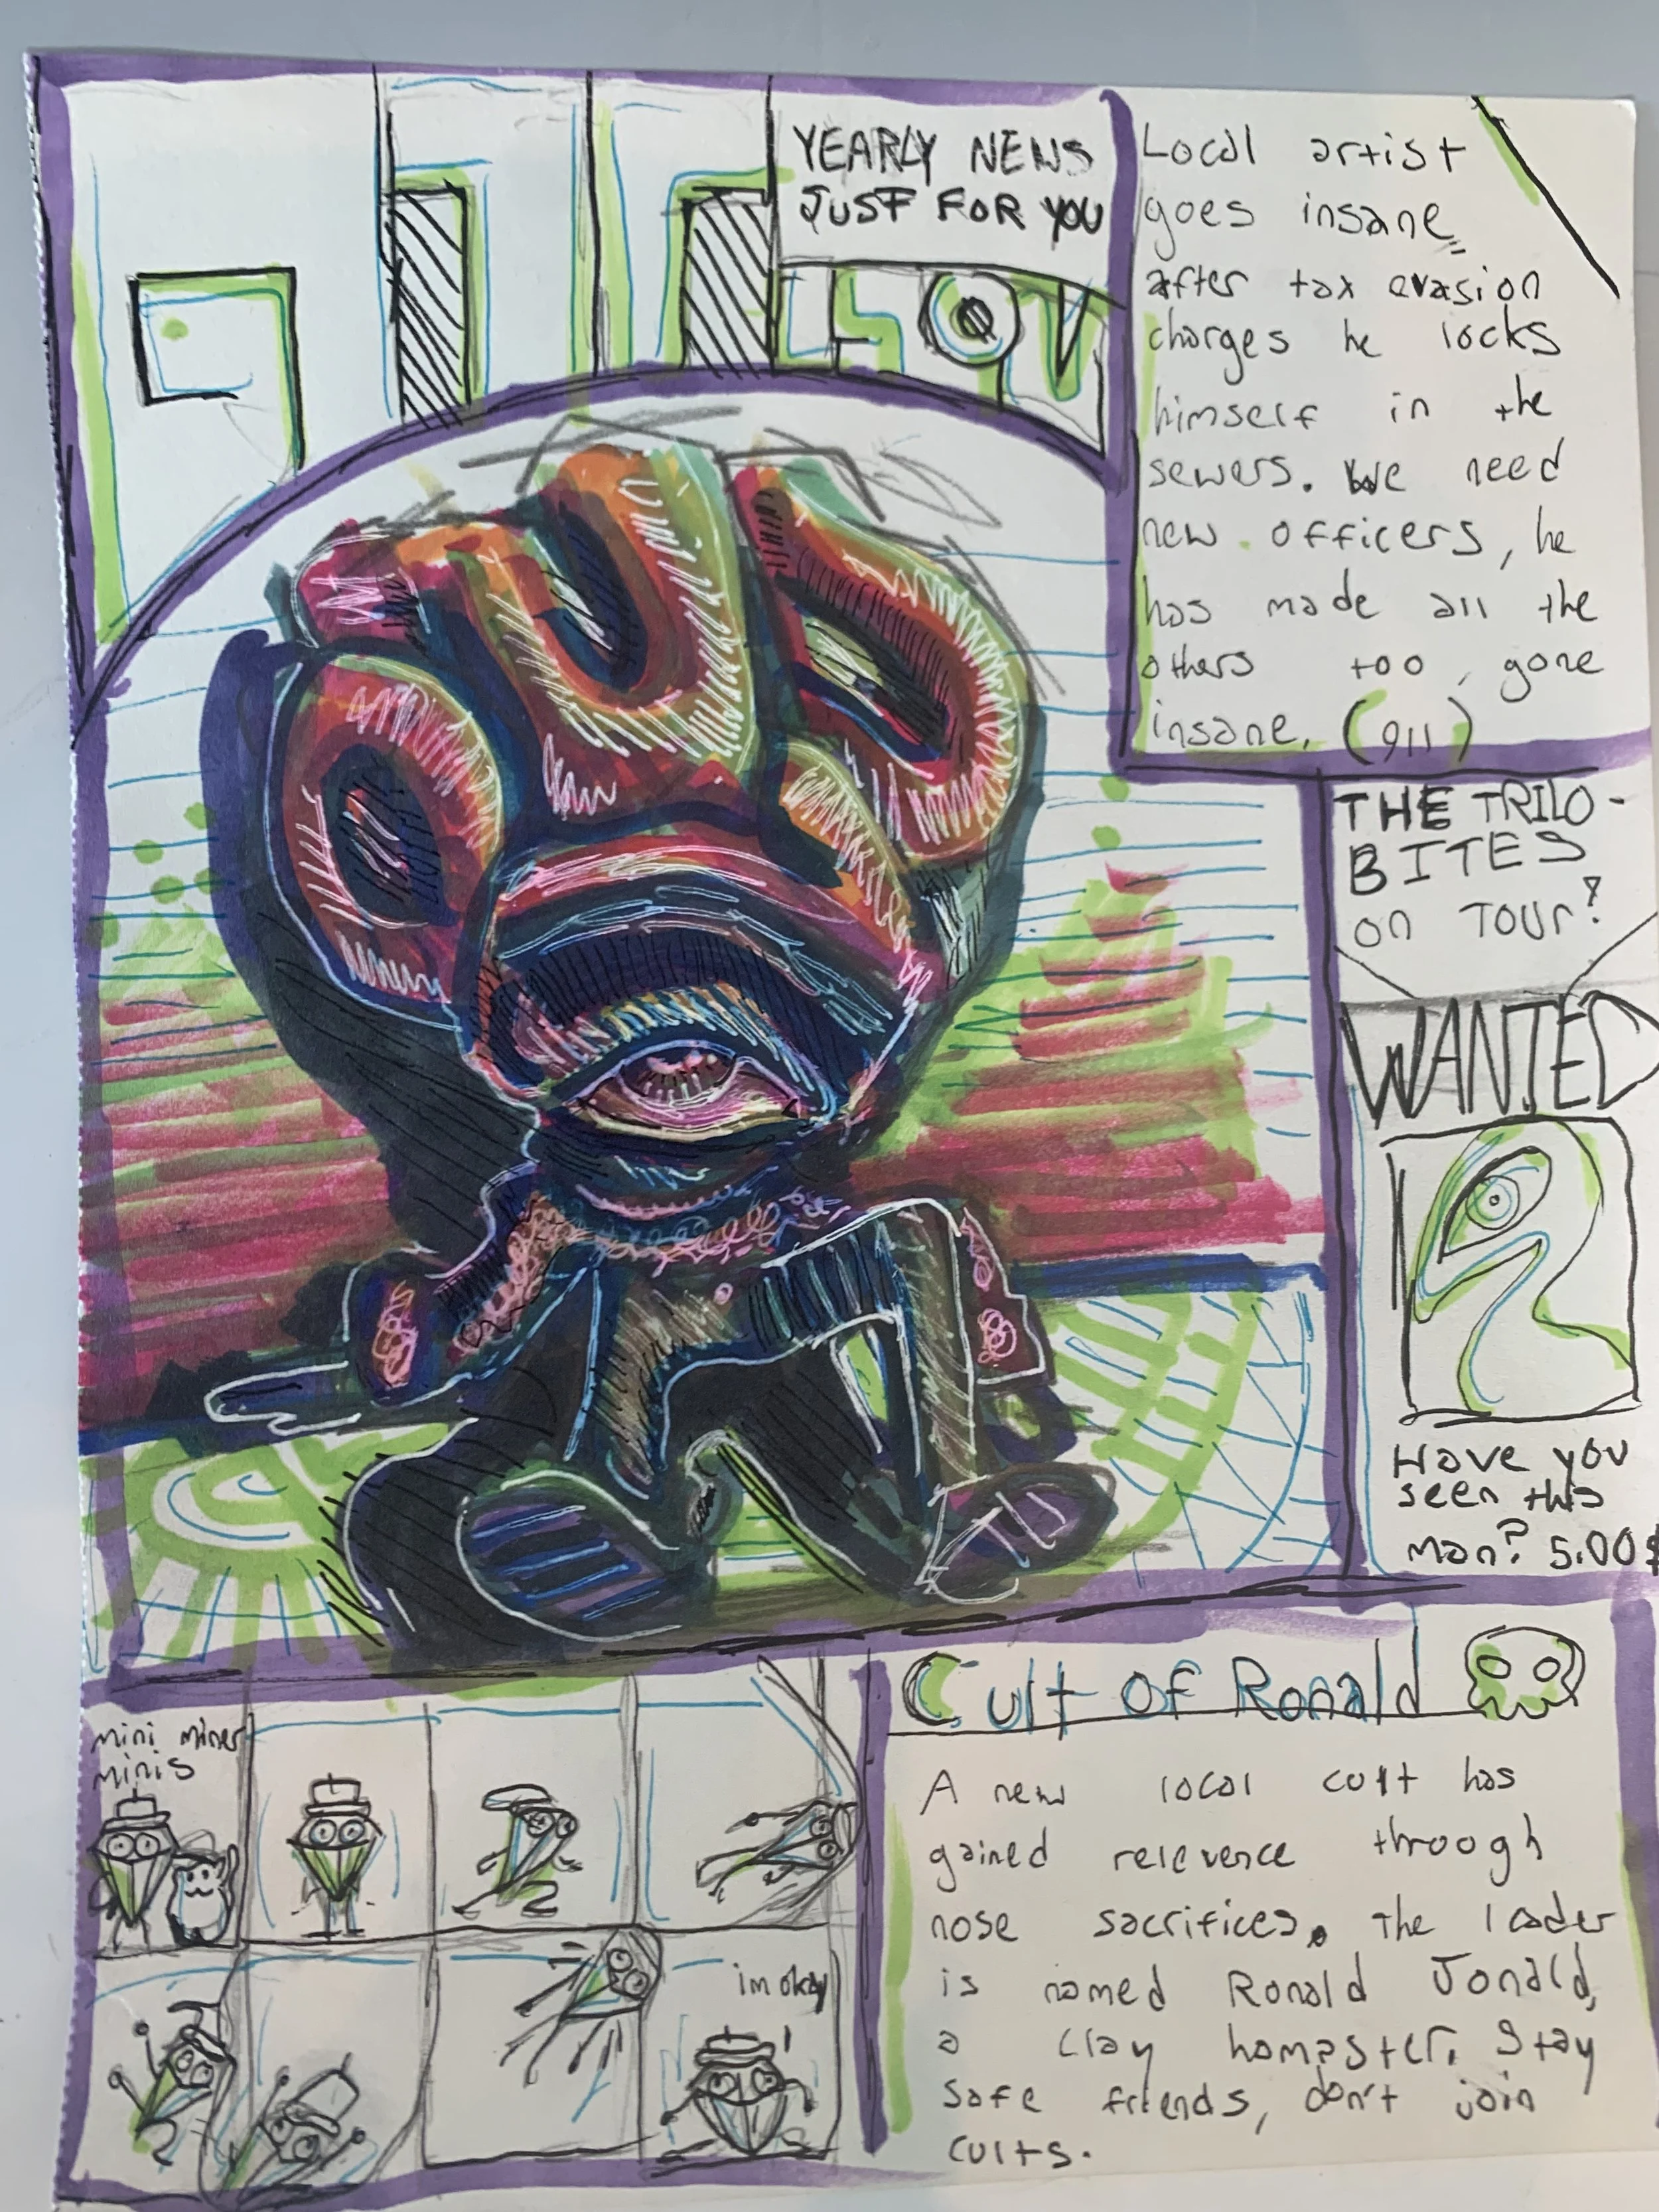 YEARLY NEWS
JUST FOR YOU
Local artist
goes insane
after tax evasion
charges he locks
himself in the
sewers. We need
new officers, he
has made all the
others too gone
insane. (911)
THE TRILO-
BITES
on TOUR?
WANTED
Have you
seen this
man? 5.00$
Cult of Ronald
A new local cult has
gained relevence through
nose sacrifices. The leader
is named Ronald Jonald,
a clay hampster. Stay
safe friends, don't join
cults.
mini miner
minis
im okay